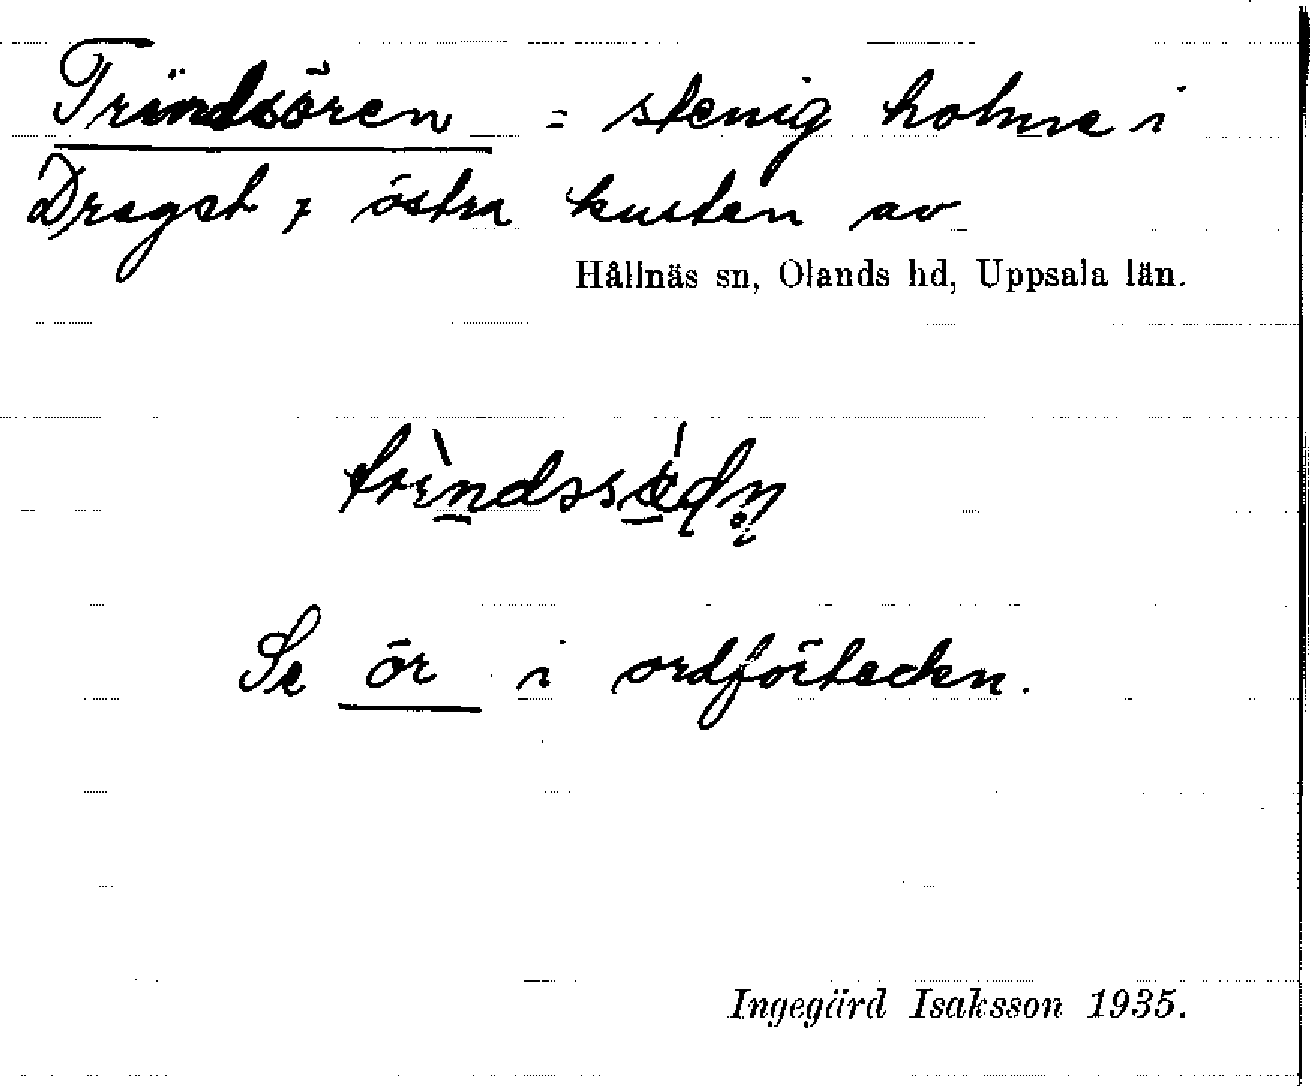 Trindsören = stenig holme i
Draget, östra kusten av
Hållnäs sn, Olands hd, Uppsala län.
Se ör i ordförteckn.
Ingegärd Isaksson 1935.